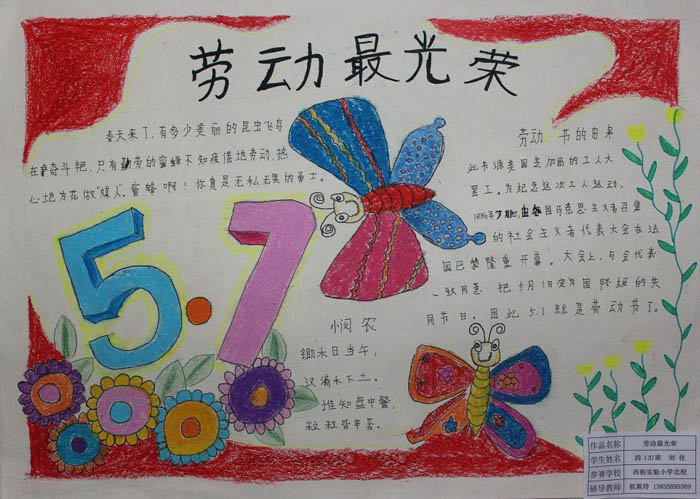 劳动最光荣
春天来了,有多少美丽的昆虫飞鸟
在奋斗艳,只有勤劳的蜜蜂不知疲倦地劳动,热
心地为花做"媒人".蜜蜂啊!你真是无私无畏的勇士。
劳动 节的由来
此节源美国芝加哥的工人大
罢工。为纪念这次工人运动,
国马克思主义者召集
的社会主义者代表大会在法
国巴黎隆重开幕。大会上,与会代表
一致同意:把5月1日定为国际级的共
同节日。因此5.1就是劳动节了。
5·1
悯农
锄禾日当午,
汉滴禾下土。
谁知盘中餐,
粒粒皆辛苦。
作品名称 劳动最光荣
学生姓名 四(3)班 刘佳
参赛学校 西街实验小学北校
辅导教师 权新玲 13835895369